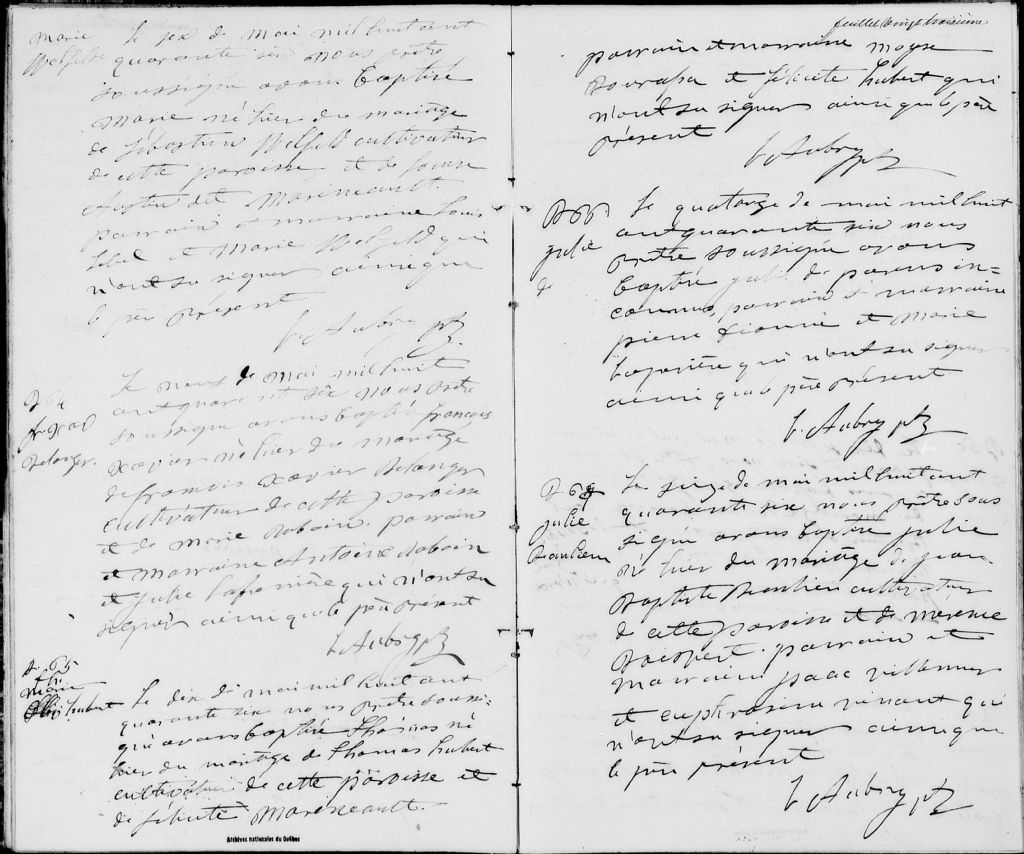 Marie
Welfeld
Le six de mai mil huit cent
quarante six nous prêtre
soussigné avons baptisé
Marie né hier du mariage
de Sébastien Welfeld cultivateur
de cette paroisse et de Louise
dit Marineault.
parrain et marraine Louis
et Marie Welfeld qui
n'ont su signer ainsi que
le père présent
L. Aubry ptr
B 64
fr. xav
Belanger.
Le neuf de mai mil huit
cent quarante six nous prêtre
soussigné avons baptisé françois
xavier né hier du mariage
de francois xavier Belanger
cultivateur de cette paroisse
et de marie Robain. parrain
et marraine Antoine Robain
et Julie Laferrière qui n'ont su
signer ainsi que le père présent
L. Aubry ptr
B. 65
hubert
Le dix de mai mil huit cent
quarante six nous prêtre soussi-
gné avons baptisé Thomas né
hier du mariage de Thomas hubert
cultivateur de cette paroisse et
de félicité Marineault.
Archives nationales du Québec
feuillet vingt troisième
parrain et marraine moyse
et félicité hubert qui
n'ont su signer ainsi que le père
présent
L. Aubry ptr
B 66
Julie
de
Le quatorze de mai mil huit
cent quarante six nous
prêtre soussigné avons
baptisé julie de parens in=
connus, parrain et marraine
pierre et Marie
qui n'ont su signer
ainsi que le père présent
L. Aubry ptr
B 67
julie
Beaulieu
Le seize de mai mil huit cent
quarante six nous prêtre sous
signé avons baptisé julie
né hier du mariage de jean
Baptiste Beaulieu cultivateur
de cette paroisse et de
parrain et
marraine isaac
et euphrosine qui
n'ont su signer ainsi que
le père présent
L. Aubry ptr